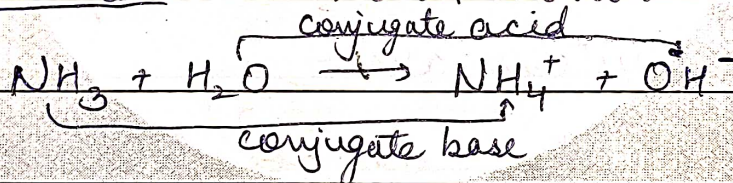 conjugate acid
NH₃ + H₂O → NH₄⁺ + OH⁻
conjugate base